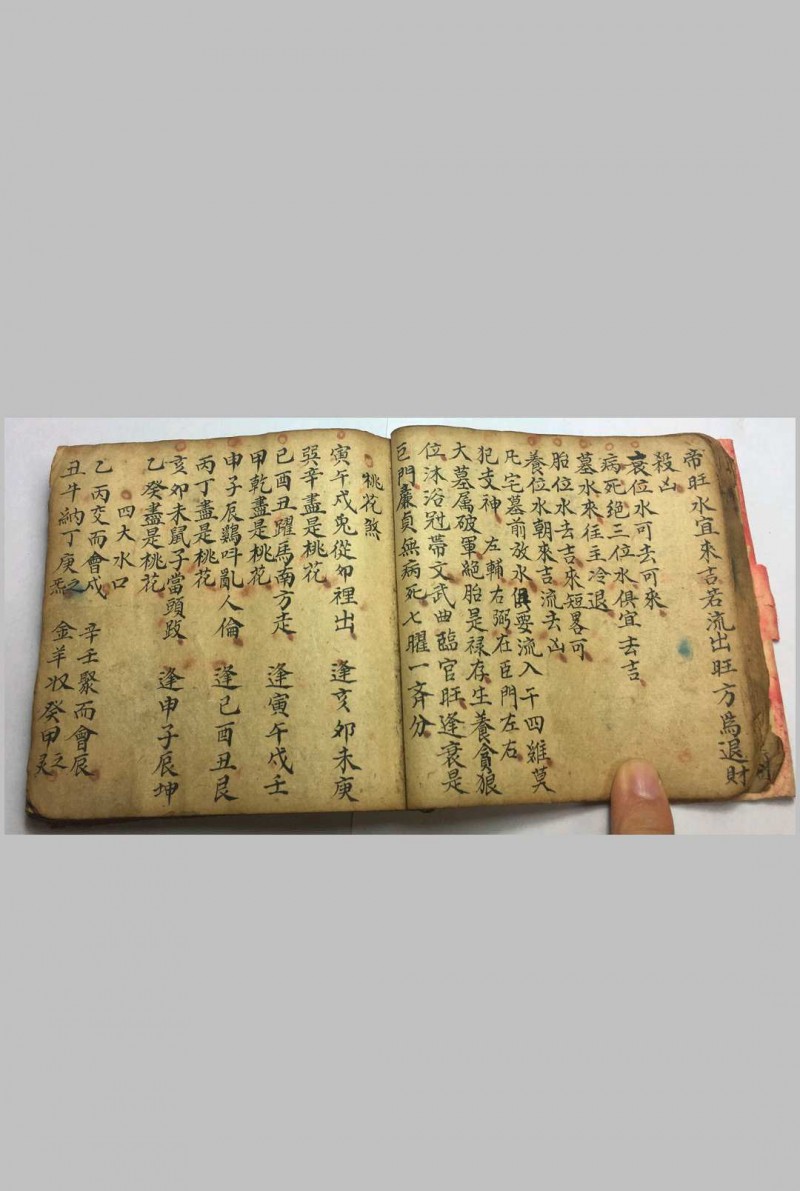 帝旺水宜来吉若流出旺方為退財
殺凶
衰位水可去可來
病死絕三位水俱宜去吉
墓水來徃主冷退
胎位水去吉來短畧可
養位水朝來吉流去凶
凡宅墓前放水俱要流入干四維莫
犯支神 左輔右弼在臣門左右
大墓属破軍絕胎是禄存生養貪狼
位沐浴冠帶文武曲臨官旺逢衰是
巨門廉貞無病死七曜一斉分
桃花煞
寅午戍兎從夘裡出 逢亥夘未庚
巽辛盡是桃花
巳酉丑躍馬南方走 逢寅午戍壬
甲乾盡是桃花
申子辰鷄呌亂人倫 逢巳酉丑艮
丙丁盡是桃花
亥夘未鼠子當頭 逢申子辰坤
乙癸盡是桃花
四大水口
乙丙交而會戍 辛壬聚而會辰
丑牛納丁庚之炁 金羊収癸甲之灵